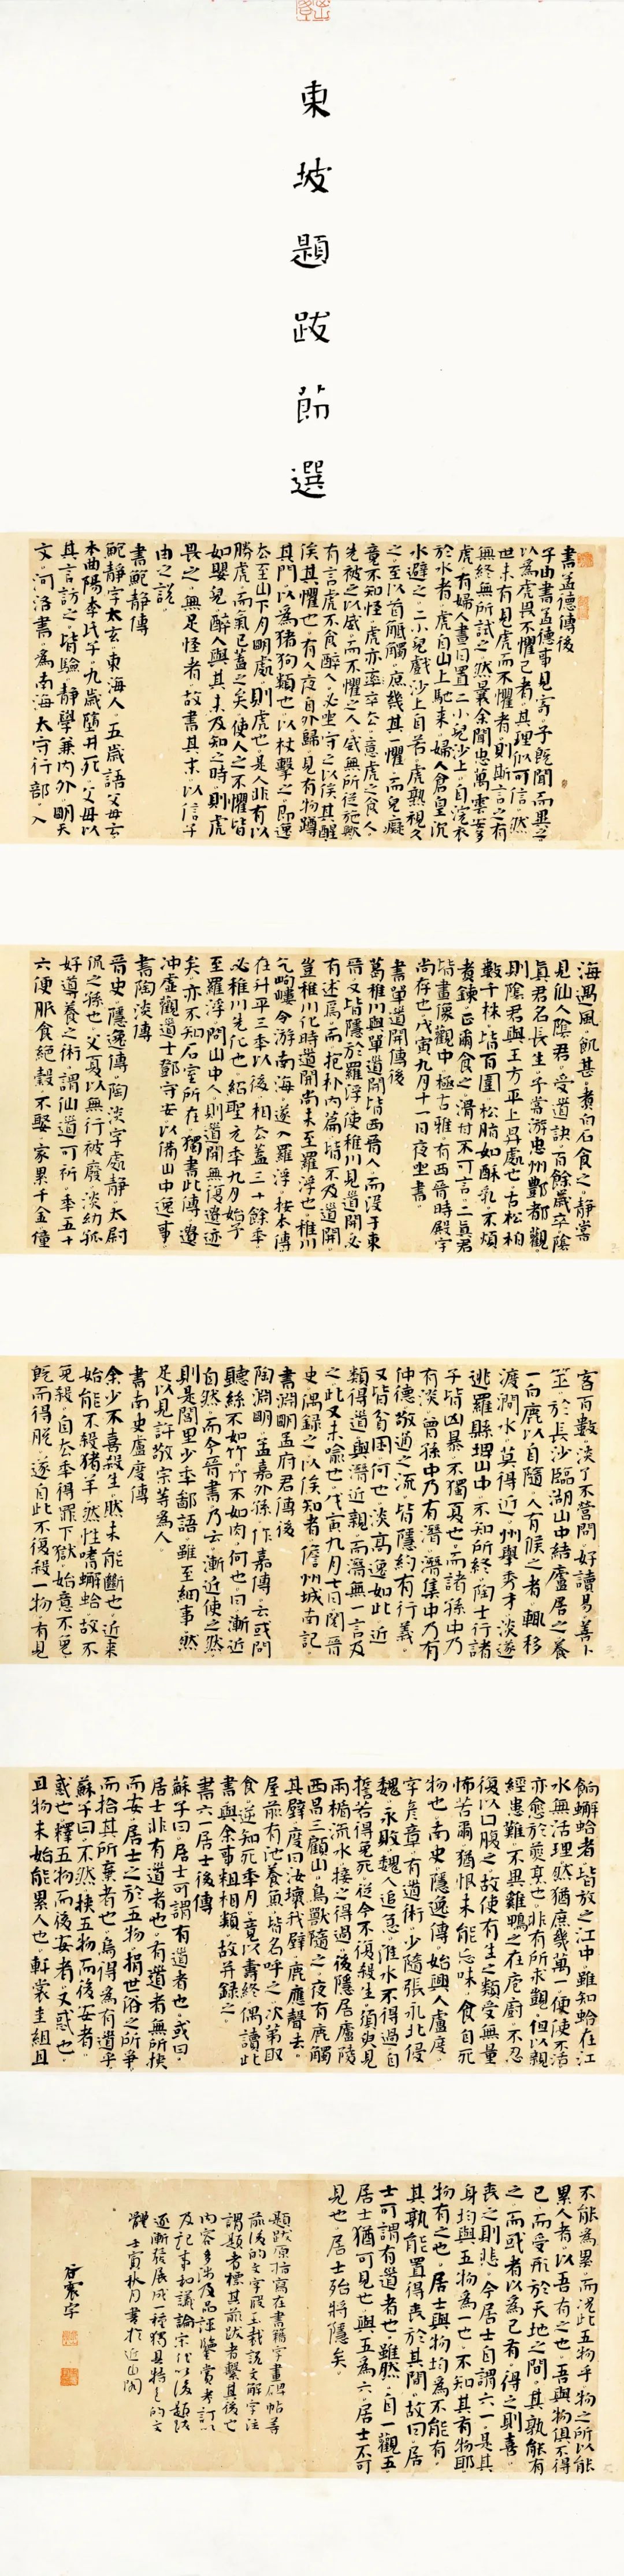 東坡題跋節選
書孟德傳後
子由書孟德事見寄予既聞而異之
以為虎畏不懼己者其理似可信然
世未有見虎而不懼者則斯言之有
無終無所試之然曩余聞忠萬雲安多
虎有婦人晝日置二小兒沙上自浣衣
於水者虎自山上馳來婦人倉皇沉
水避之二小兒戲沙上自若虎熟視久
之至以首觝觸庶幾其一懼而兒癡
竟不知怪虎亦率卒去意虎之食人
先被之以威而不懼之人威無所從施歟
有言虎不食醉人必坐守之以俟其醒
俟其懼也有人夜自外歸見有物蹲
其門以為猪狗類也以杖擊之即逸
去至山下月明處則虎也是人非有以
勝虎而氣已蓋之矣使人之不懼皆
如嬰兒醉人與其未及知之時則虎
畏之無足怪者故書其末以信子
由之說
書鮑靜傳
鮑靜字太玄東海人五歲語父母云
本曲陽李氏子九歲墮井死父母以
其言訪之皆驗靜學兼內外明天
文河洛書為南海太守行部入
海遇風飢甚煮白石食之靜嘗
見仙人陰君受道訣百餘歲卒陰
真君名長生予嘗游忠州酆都觀
則陰君與王方平上昇處也古松柏
數千株皆百圍松脂如酥乳不煩
煮鍊正爾食之滑甘不可言二真君
皆畫像觀中極古雅有西晉時殿宇
尚存也戊寅九月十一日夜坐書
書單道開傳後
葛稚川與單道開皆西晉人而沒于東
晉又皆隱於羅浮使稚川見道開必
有述焉而抱朴內篇皆不及道開
豈稚川化時道開尚未至羅浮也稚川
乞岣嶁令游南海遂入羅浮按本傳
在升平三年以後相去蓋三十餘年
必稚川先化也紹聖元年九月始予
至羅浮問山中人則道開無復遺迹
矣亦不知石室所在獨書此傳遺
沖虛觀道士鄧守安以備山中逸事
書陶淡傳
晉史隱逸傳陶淡字處靜太尉
侃之孫也父夏以無行被廢淡幼孤
好導養之術謂仙道可祈年五十
六便服食絕穀不娶家累千金僮
客百數淡了不營問好讀易善卜
筮於長沙臨湖山中結廬居之養
一白鹿以自隨人有候之者輒移
渡澗水莫得近州舉秀才淡遂
逃羅縣埤山中不知所終陶士行諸
子皆凶暴不獨夏也而諸孫中乃
有淡曾孫中乃有潛潛集中乃有
仲德敬通之流皆隱約有行義
又皆貧困何也淡高逸如此近
類得道與潛近親而潛無一言及
之此又未喻也戊寅九月七日閱晉
史偶錄之以俟知者儋州城南記
書淵明孟府君傳後
陶淵明孟嘉外孫作嘉傳云或問
聽絲不如竹竹不如肉何也曰漸近
自然而今晉書乃云漸近使之然
則是閭里少年鄙語雖至細事然
足以見許敬宗等為人
書南史盧度傳
余少不喜殺生然未能斷也近來
始能不殺猪羊然性嗜蟹蛤故不
免殺自去年得罪下獄始意不免
既而得脫遂自此不復殺一物有見
餉蟹蛤者皆放之江中雖知蛤在江
水無活理然猶庶幾萬一便使不活
亦愈於煎烹也非有所求覬但以親
經患難不異雞鴨之在庖廚不忍
復以口腹之故使有生之類受無量
怖苦爾猶恨未能忘味食自死
物也南史隱逸傳始興人盧度
字彥章有道術少隨張永北侵
魏永敗魏人追急淮水不得過自
誓若得免死從今不復殺生須臾見
兩楯流水接之得過後隱居廬陵
西昌三顧山鳥獸隨之夜有鹿觸
其壁度曰汝壞我壁鹿應聲去
屋前有池養魚皆名呼之次第取
食逆知死年月竟以壽終偶讀此
書與余事粗相類故并錄之
書六一居士後傳
蘇子曰居士可謂有道者也或曰
居士非有道者也有道者無所挾
而安居士之於五物捐世俗之所爭
而拾其所棄者也烏得為有道乎
蘇子曰不然挾五物而後安者
惑也釋五物而後安者又惑也
且物未始能累人也軒裳圭組且
不能為累而況此五物乎物之所以能
累人者以吾有之也吾與物俱不得
已而受形於天地之間其孰能有
之而或者以為己有得之則喜
喪之則悲今居士自謂六一是其
身均與五物為一也不知其有物耶
物有之也居士與物均為不能有
其孰能置得喪於其間故曰居
士可謂有道者也雖然自一觀五
居士猶可見也與五為六居士不可
見也居士殆將隱矣
題跋原指寫在書籍字畫碑帖等
前後的文字段玉裁說文解字注
謂題者標其前跋者繫其後也
內容多涉及品評鑒賞考訂以
及記事和議論宋代以後題跋
逐漸發展成一種獨具特色的文
體壬寅秋月書於近山閣